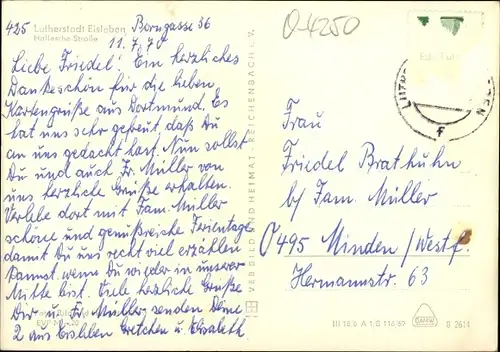 425 Lutherstadt Eisleben Borngasse 36
Hallesche Straße
11.7.70
Liebe Friedel! Ein herzliches
Dankeschön für die lieben
Kartengrüße aus Dortmund. Es
hat uns sehr gefreut, daß Du
an uns gedacht hast. Nun sollst
Du und auch Fr. Müller von
uns herzliche Grüße erhalten.
Verlebe dort mit Fam. Müller
schöne und genußreiche Ferientage
damit Du uns recht viel erzählen
kannst, wenn Du wieder in unserer
Mitte bist. Viele herzliche Grüße
Dir u. Fr. Müller senden Deine
2 aus Eisleben Gretchen u. Elisabeth
VEB BILD UND HEIMAT · REICHENBACH I. V.
O-4250
Frau
Friedel Brathuhn
b/ Fam. Müller
O 495 Minden/Westf.
Hermannstr. 63
III 18 6 A 1 G 116/69
S 2614